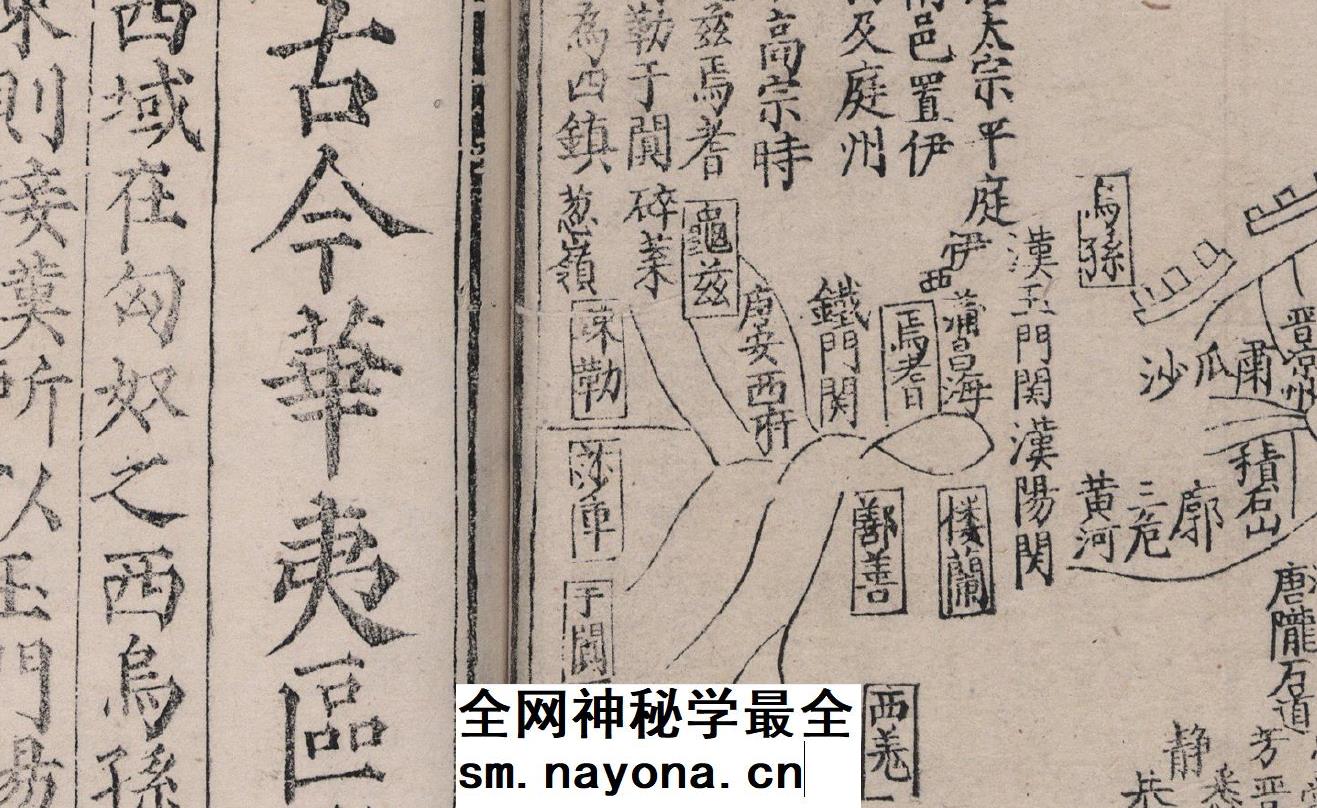 古今華夷區
西域在匈奴之西烏孫
則接漢所以玉門易
太宗平庭
邑置伊
及庭州
高宗時
兹焉耆
勒于闐碎葉
為四鎮葱嶺
龜兹
疎勒
莎車
于闐
唐安西府
鐵門関
焉耆
伊
西
蒲昌海
漢玉門関漢陽関
烏孫
鄯善
楼蘭
西羌
沙
瓜
肅
晋涼州
積石山
黄河
三危
廓
唐隴右道
静
芳
恭
全网神秘学最全
sm.nayona.cn